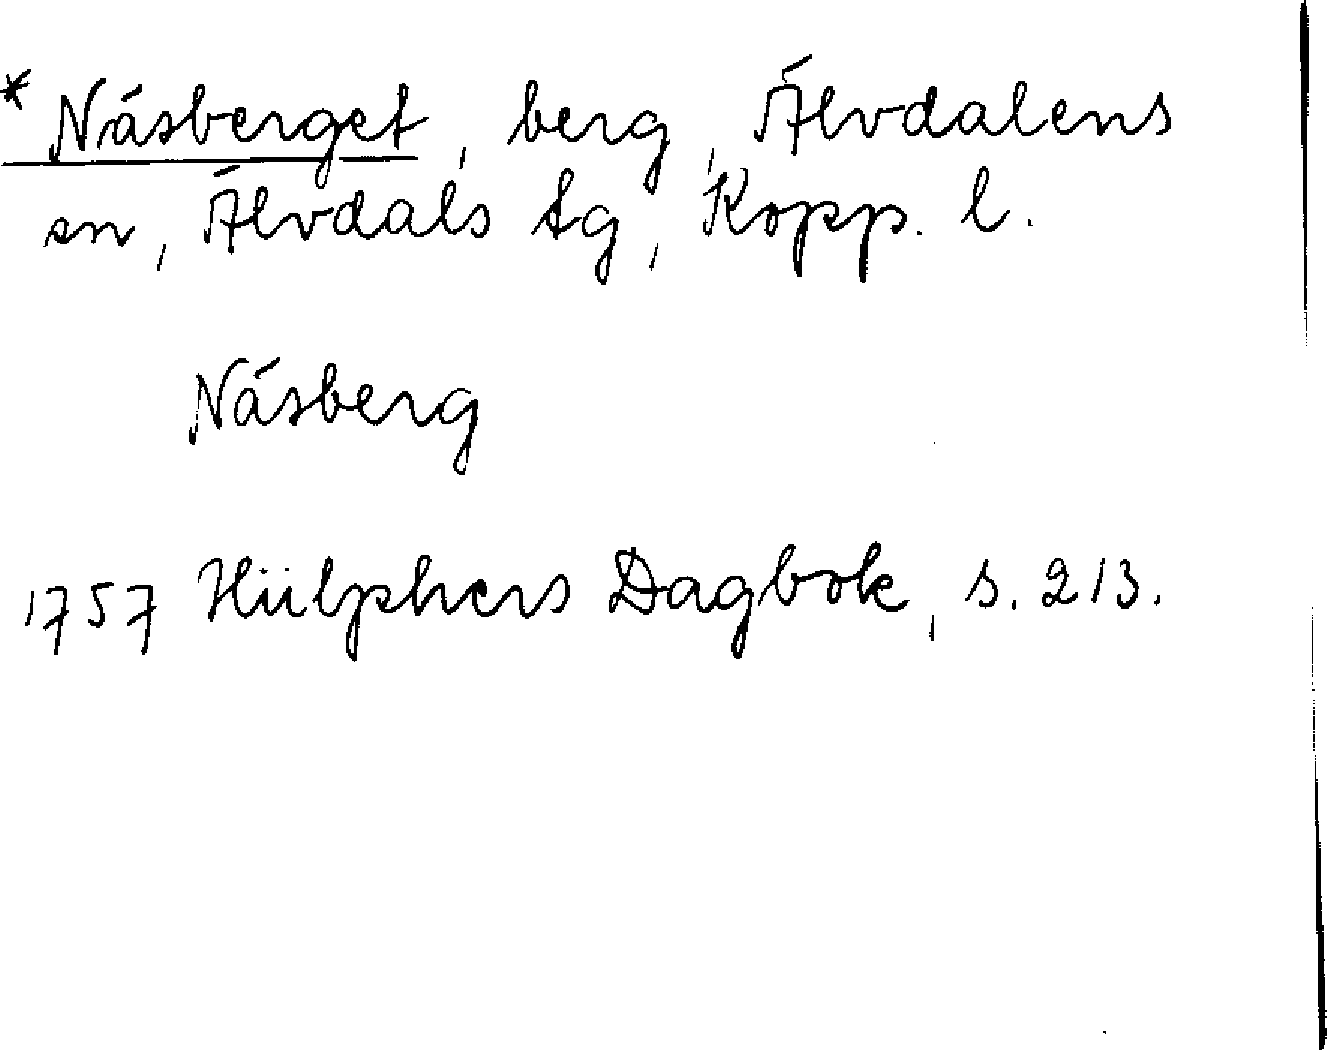 * Näsberget, berg, Älvdalens
sn, Älvdals tg, Kopp. l.
Näsberg
1757 Hülphers Dagbok, s. 213.